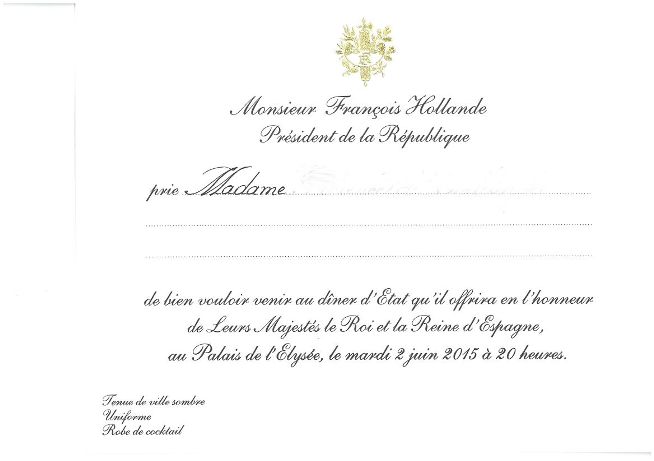 Monsieur François Hollande
Président de la République
prie Madame
de bien vouloir venir au dîner d'Etat qu'il offrira en l'honneur
de Leurs Majestés le Roi et la Reine d'Espagne,
au Palais de l'Elysée, le mardi 2 juin 2015 à 20 heures.
Tenue de ville sombre
Uniforme
Robe de cocktail